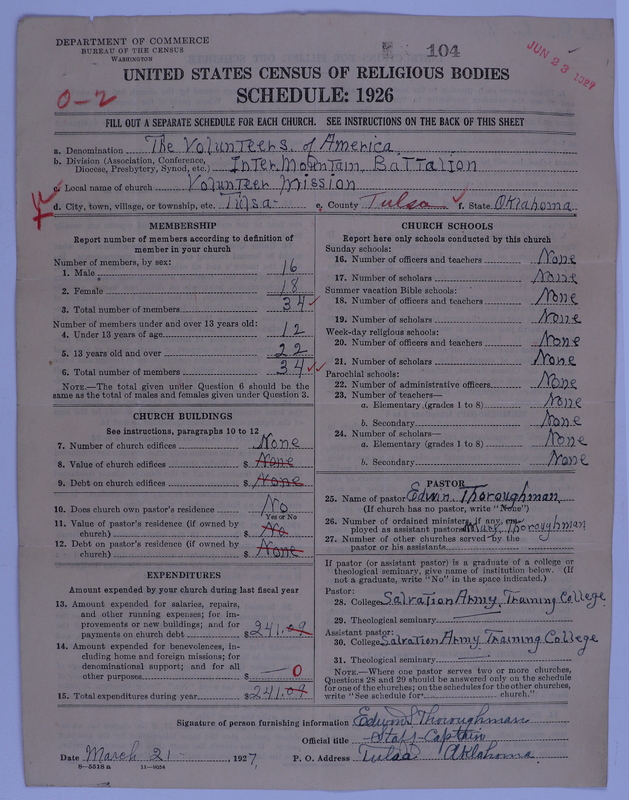 DEPARTMENT OF COMMERCE
BUREAU OF THE CENSUS
WASHINGTON
104
JUN 23 1927
UNITED STATES CENSUS OF RELIGIOUS BODIES
SCHEDULE: 1926
O-2
FILL OUT A SEPARATE SCHEDULE FOR EACH CHURCH. SEE INSTRUCTIONS ON THE BACK OF THIS SHEET
a. Denomination The Volunteers of America
b. Division (Association, Conference, Diocese, Presbytery, Synod, etc.) Inter Mountain Battalion
c. Local name of church Volunteer Mission
d. City, town, village, or township, etc. Tulsa e. County Tulsa f. State Oklahoma
MEMBERSHIP
Report number of members according to definition of
member in your church
Number of members, by sex:
1. Male 16
2. Female 18
3. Total number of members 34
Number of members under and over 13 years old:
4. Under 13 years of age 12
5. 13 years old and over 22
6. Total number of members 34
NOTE.—The total given under Question 6 should be the
same as the total of males and females given under Question 3.
CHURCH BUILDINGS
See instructions, paragraphs 10 to 12
7. Number of church edifices None
8. Value of church edifices $ None
9. Debt on church edifices $ None
10. Does church own pastor's residence No
Yes or No
11. Value of pastor's residence (if owned by
church) $ No
12. Debt on pastor's residence (if owned by
church) $ None
EXPENDITURES
Amount expended by your church during last fiscal year
13. Amount expended for salaries, repairs,
and other running expenses; for im-
provements or new buildings; and for
payments on church debt $ 241.09
14. Amount expended for benevolences, in-
cluding home and foreign missions; for
denominational support; and for all
other purposes $ 0
15. Total expenditures during year $ 241.09
CHURCH SCHOOLS
Report here only schools conducted by this church
Sunday schools:
16. Number of officers and teachers None
17. Number of scholars None
Summer vacation Bible schools:
18. Number of officers and teachers None
19. Number of scholars None
Week-day religious schools:
20. Number of officers and teachers None
21. Number of scholars None
Parochial schools:
22. Number of administrative officers None
23. Number of teachers—
a. Elementary (grades 1 to 8) None
b. Secondary None
24. Number of scholars—
a. Elementary (grades 1 to 8) None
b. Secondary None
PASTOR
25. Name of pastor Edwin Thoroughman
(If church has no pastor, write "None")
26. Number of ordained ministers, if any, em-
ployed as assistant pastors Thoroughman
27. Number of other churches served by the
pastor or his assistants
If pastor (or assistant pastor) is a graduate of a college or
theological seminary, give name of institution below. (If
not a graduate, write "No" in the space indicated.)
Pastor:
28. College Salvation Army Training College
29. Theological seminary
Assistant pastor:
30. College Salvation Army Training College
31. Theological seminary
NOTE.—Where one pastor serves two or more churches,
Questions 28 and 29 should be answered only on the schedule
for one of the churches; on the schedules for the other churches,
write "See schedule for church."
Signature of person furnishing information Edwin Thoroughman
Official title Staff-Captain
Date March 21, 1927 P. O. Address Tulsa Oklahoma
8-5518 a 11-9054